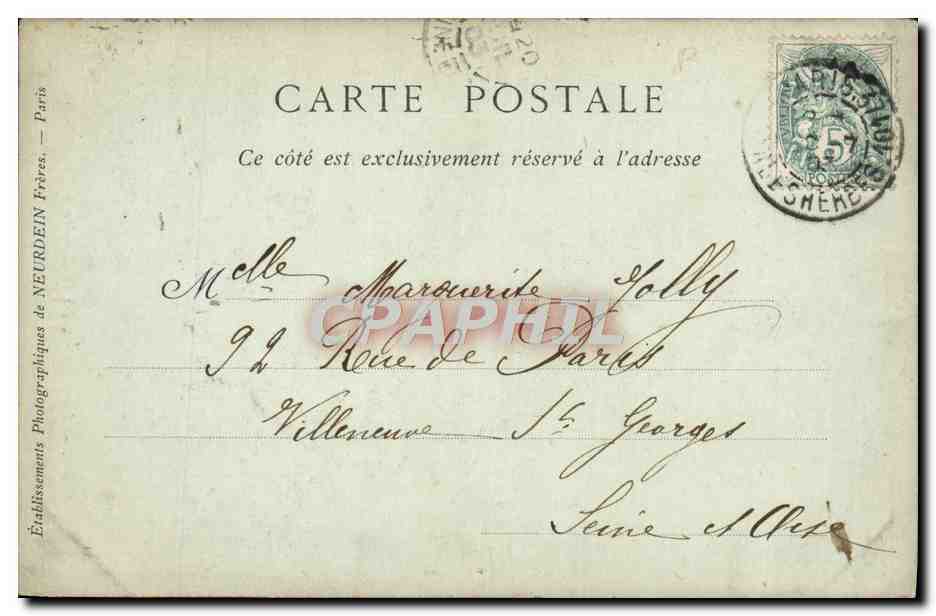 CARTE POSTALE
Ce côté est exclusivement réservé à l'adresse
Melle Marguerite Jolly
92 Rue de Paris
Villeneuve St. Georges
Seine et Oise
Établissements Photographiques de NEURDEIN Frères. — Paris
CPAPHIL
5
POSTES